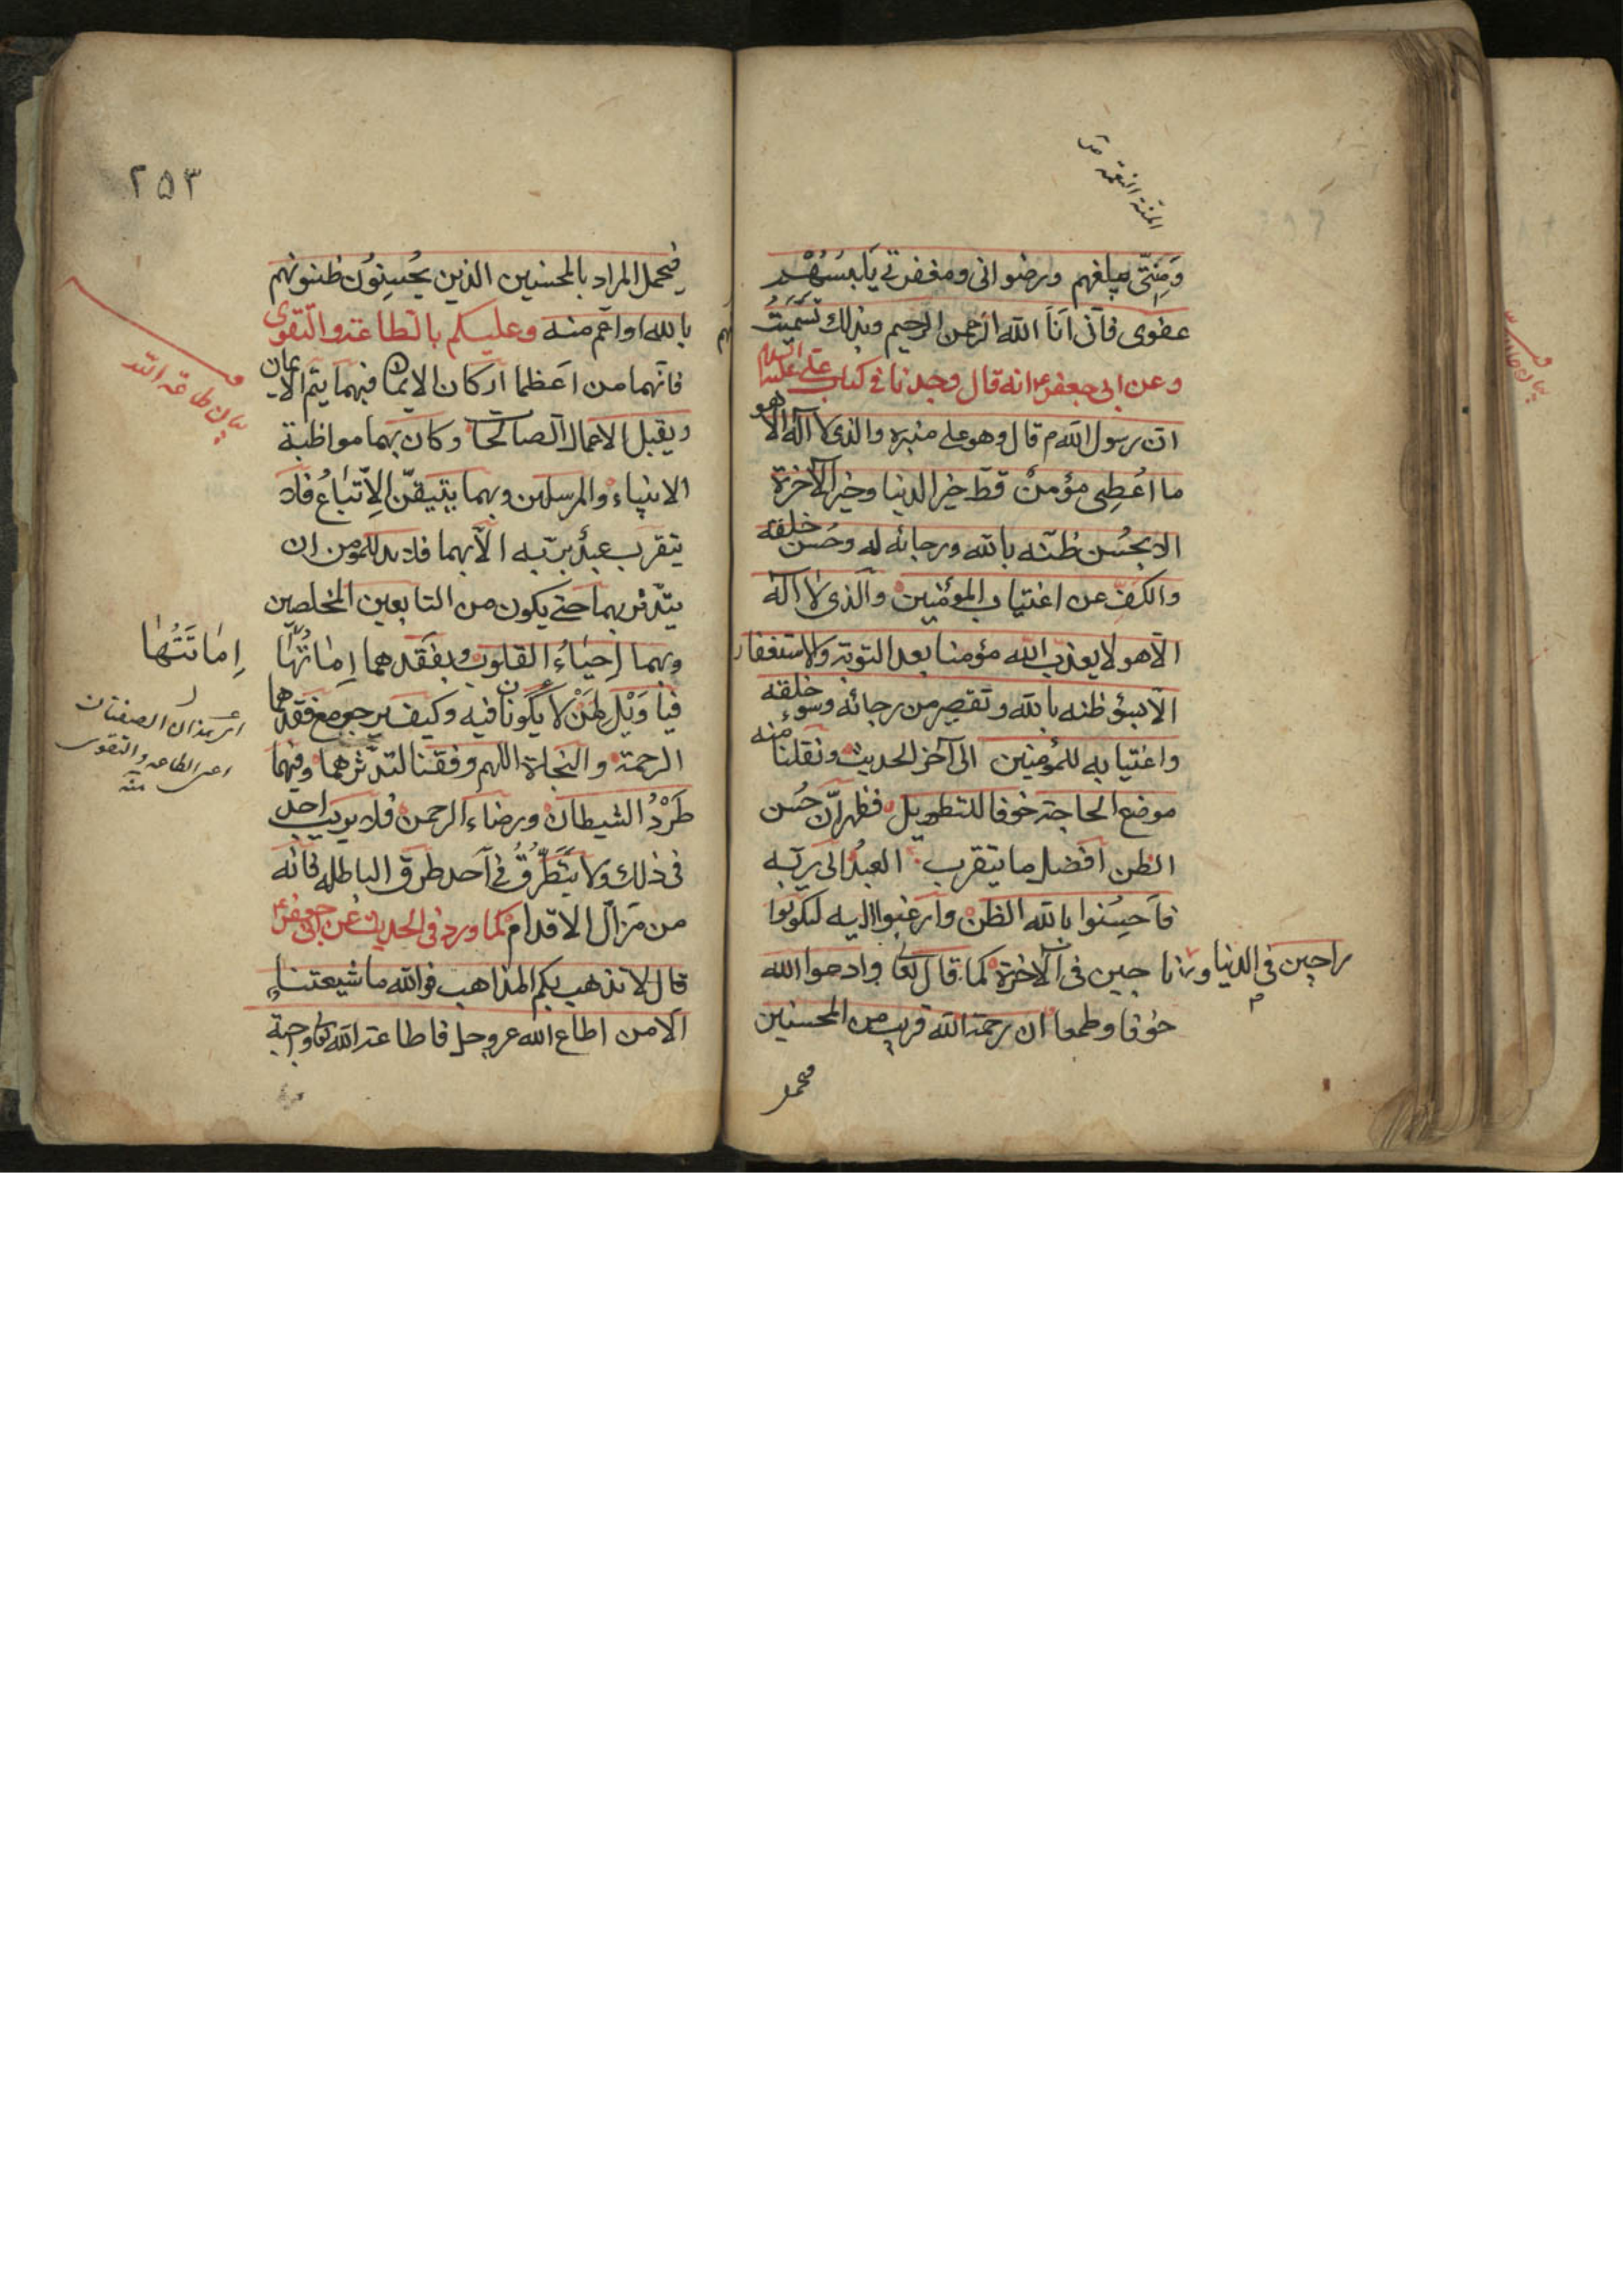 المنة النعمة
وَمِنَّتى تبلغهم ورضوانى ومغفرتى يَلبسُهُمْ
عفوى فانّى اَنَا الله الرحمن الرحيم وبذلك تَسَمَّيتُ
وعن ابى جعفرع انه قال وجدنا فى كتاب على عليه السلام
ان رسول الله م قال وهو على منبره والذى لا اله الا هو
ما اُعْطِىَ مؤمنٌ قطّ خير الدنيا وخير الآخرة
الا بحُسن ظنّه بالله ورجائه له وحُسن خلقه
والكفّ عن اغتياب المؤمنين والذى لا اله
الّا هو لا يعذب الله مؤمنا بعد التوبة والاستغفار
الّا بسؤ ظنه بالله وتقصير من رجائه وسوء خلقه
واغتيابه للمؤمنين الى آخر الحديث ونقلنا منه
موضع الحاجة خوفا للتطويل فظهر انّ حُسن
الظن افضل ما يتقرب العبدُ الى ربّه
فاَحسِنوا بالله الظن وارغبوا اليه لتكونوا
راجين فى الدنيا وناجين فى الآخرة كما قال تعا وادعوا الله
خوفا وطمعا ان رحمة الله قريب من المحسنين
فيحمل
٢٥٣
فيحمل المراد بالمحسنين الذين يُحسِنُون ظنونهم
بالله او اعم منه وعليكم بالطاعة والتقوى
فانّهما من اعظما اركان الايمان فبهما يتم الايمان
ويقبل الاعمال الصالحا وكان بهما مواظبة
الانبياء والمرسلين وبهما يتيقّن الاِتّباعُ فلا
يتقرب عبدٌ بربّه الّا بهما فلا بد للمؤمن ان
يتّدثر بهما حتى يكون من التابعين المخلصين
وبهما اِحيَاءُ القلوب وبفَقدهما اِمَاتَتُها
اِمَاتَتُهَا
فيا وَيْل لمَنْ لا يكونان فيه وكيف يرجو مع فقدهما
اى هذان الصفتان
الرحمة والنجاة اللهم وفقنا لتدثرهما وفيهما
اعنى الطاعه والتقوى
منه
طَرْدُ الشيطان ورضاء الرحمن فلا يريب احد
فى ذلك ولا يَتَطَرَّقُ فى احد طرق الباطله فانه
من مَزَالّ الاقدام كما ورد فى الحديث عن ابى جعفرع
قال لا تذهب بكم المذاهب فوالله ما شيعتنا
الّا من اطاع الله عز وجل فاطاعة الله تعا واجبة
بيان طاعة الله